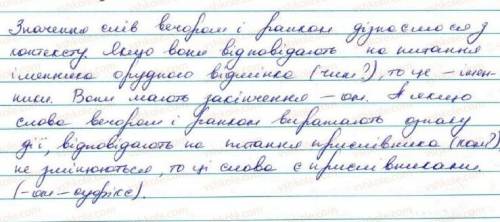 Значення слів вечором і ранком дізнаємося з
контексту. Якщо вони відповідають на питання
іменника орудного відмінка (чим?), то це – імен-
ники. Вони мають закінчення -ом. А якщо
слова вечором і ранком виражають ознаку
дії, відповідають на питання прислівника (коли?)
не змінюються, то ці слова є прислівниками.
(-ом – суфікс).